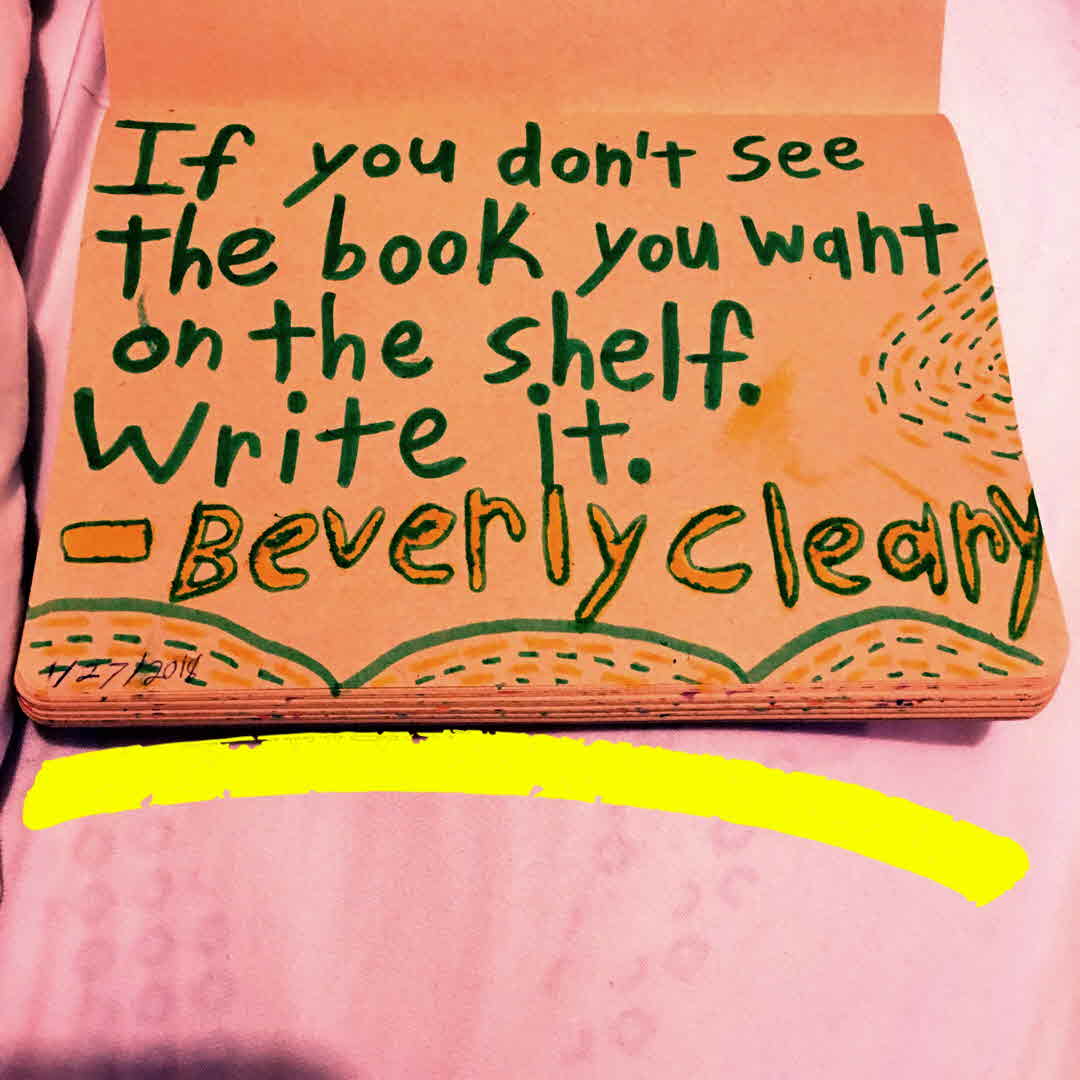 If you don't see
the book you want
on the shelf.
Write it.
- Beverly Cleary